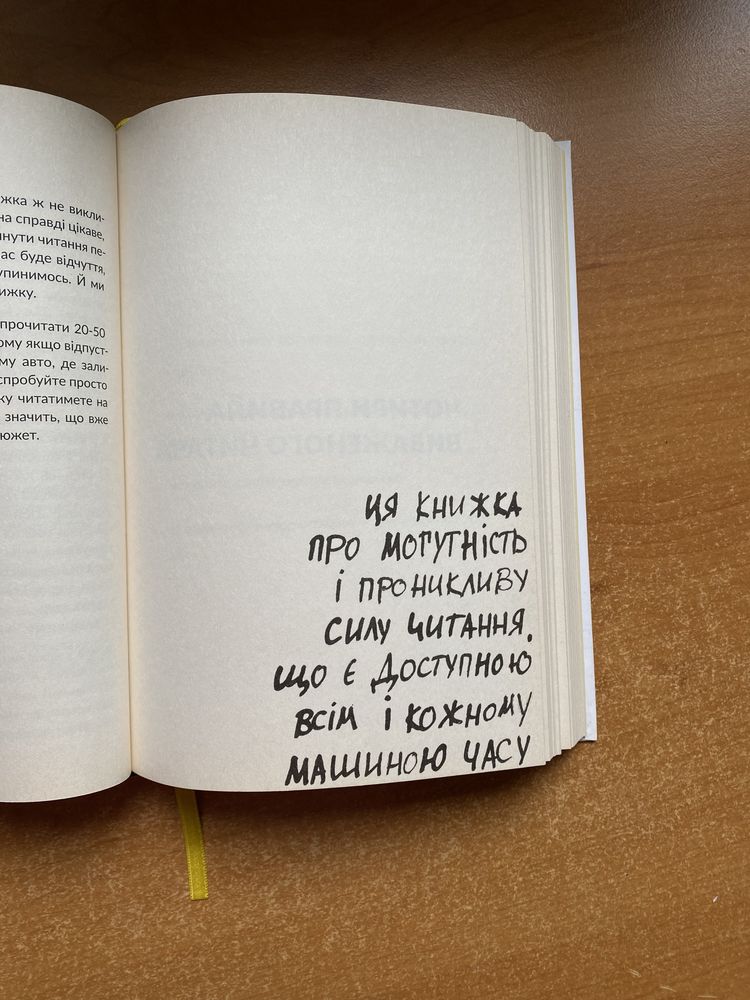 жка ж не викли-
на справді цікаве,
нути читання пе-
ас буде відчуття,
упинимось. Й ми
ижку.
прочитати 20-50
ому якщо відпуст-
му авто, де зали-
спробуйте просто
ку читатимете на
значить, що вже
южет.
ЦЯ КНИЖКА
ПРО МОГУТНІСТЬ
І ПРОНИКЛИВУ
СИЛУ ЧИТАННЯ,
ЩО Є ДОСТУПНОЮ
ВСІМ І КОЖНОМУ
МАШИНОЮ ЧАСУ